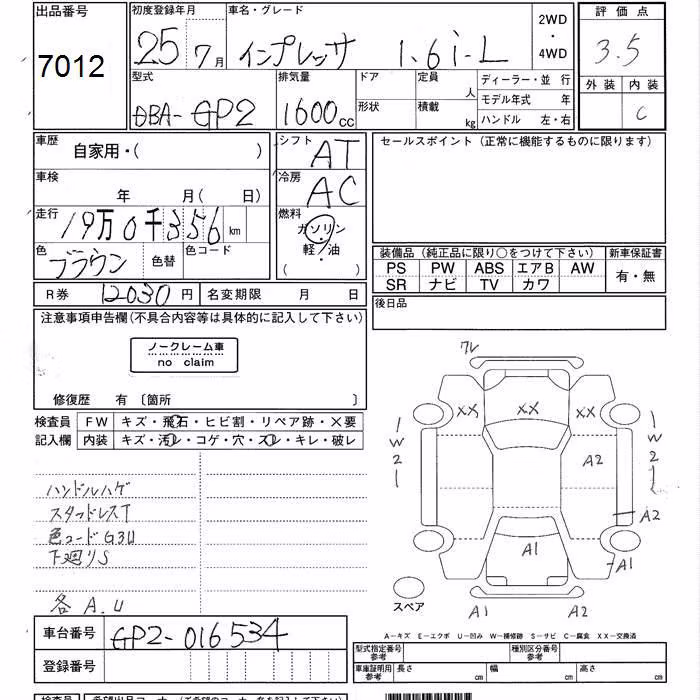 出品番号
7012
初度登録年月
25 7月
車名・グレード
インプレッサ 1.6i-L
2WD
・
4WD
評価点
3.5
外装 内装
C
型式
DBA-GP2
排気量
1600cc
ドア
形状
定員
人
積載
kg
ディーラー・並行
モデル年式 年
ハンドル 左・右
車歴
自家用・( )
シフト
AT
セールスポイント (正常に機能するものに限ります)
車検
年 月( 日)
冷房
AC
走行
19万0千356km
燃料
ガソリン
軽・油
( )
色
ブラウン
色替
色コード
装備品(純正品に限り○をつけて下さい)
新車保証書
PS PW ABS エアB AW
SR ナビ TV カワ
有・無
R券 12030円
名変期限 月 日
後日品
注意事項申告欄(不具合内容等は具体的に記入して下さい)
ノークレーム車
no claim
修復歴 有 〔箇所 〕
検査員
記入欄
FW キズ・飛石・ヒビ割・リペア跡・×要
内装 キズ・汚レ・コゲ・穴・スレ・キレ・破レ
ハンドルハゲ
スタッドレスT
色コードG3U
下廻りS
各A.U
ワレ
XX XX XX
W2
W2
A2
A2
A1
A1
A1 A2
スペア
A-キズ E-エクボ U-凹み W-補修跡 S-サビ C-腐食 XX-交換済
車台番号
GP2-016534
登録番号
型式指定番号
参考
種別区分番号
参考
車庫証明用
参考
長さ cm
幅 cm
高さ cm